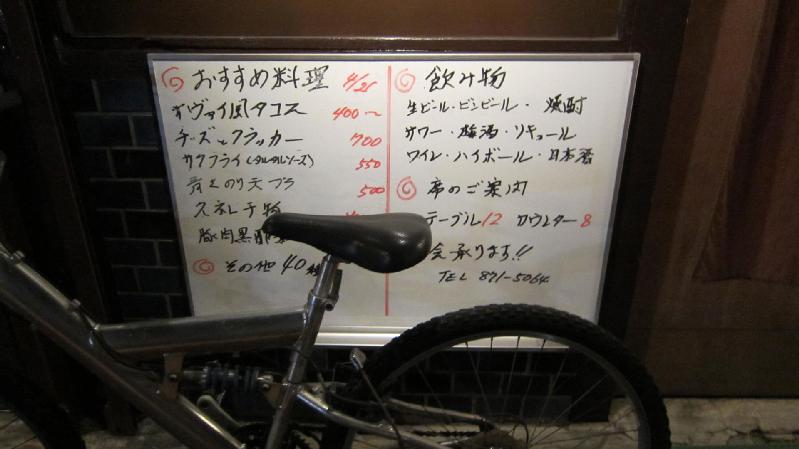 おすすめ料理 4/25
風タコス 400〜
チーズとクラッカー 700
フライ(タルタルソース) 550
青とのり天プラ 500
豚肉黒
その他 40
飲み物
生ビール・ビンビール・焼酎
サワー・梅酒・リキュール
ワイン・ハイボール・日本酒
席のご案内
テーブル12 カウンター8
会承ります!!
TEL 871-5064